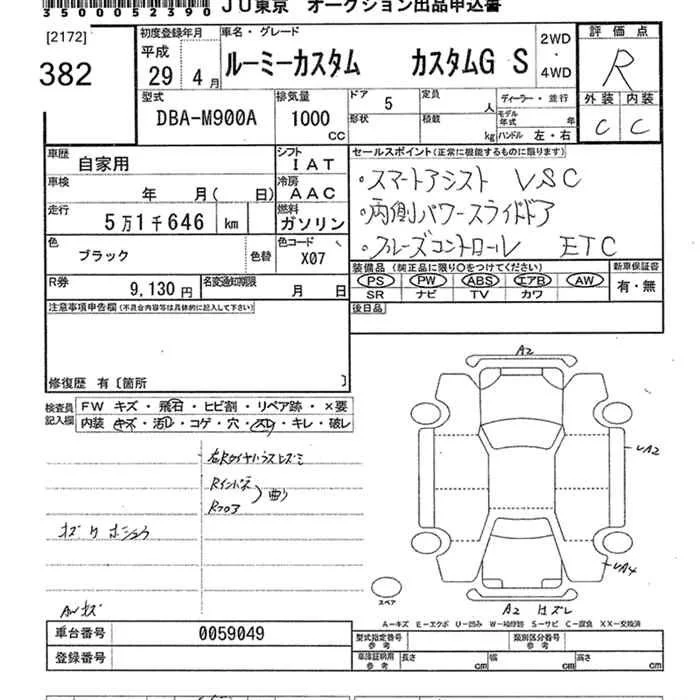 3500052390 JU東京 オークション出品申込書
[2172]
382
初度登録年月 車名・グレード
平成
29 4月
ルーミーカスタム カスタムG S
2WD
・
4WD
評価点
R
外装 内装
C C
型式 排気量 ドア 5 定員 人 ディーラー・並行
DBA-M900A 1000 CC
形状 積載 kg
モデル年式 年
ハンドル 左・右
車歴 自家用 シフト IAT
車検 年 月( 日) 冷房 AAC
走行 5万1千646 km 燃料 ガソリン
色 ブラック 色替 色コード X07
R券 9,130円 名変通知期限 月 日
セールスポイント(正常に機能するものに限ります)
・スマートアシスト VSC
・両側パワースライドドア
・クルーズコントロール ETC
装備品(純正品に限り○をつけてください) 新車保証書
PS PW ABS エアB AW 有・無
SR ナビ TV カワ
後日品
注意事項申告欄(不具合内容等は具体的に記入して下さい)
修復歴 有〔箇所 〕
検査員記入欄
FW キズ・飛石・ヒビ割・リペア跡・×要
内装 キズ・汚れ・コゲ・穴・スレ・キレ・破レ
Rインパネ
Rフロア
曲り
AWキズ
A2
UA2
UA4
A2 ハズレ
スペア
A－キズ E－エクボ U－凹み W－補修跡 S－サビ C－腐食 XX－交換済
車台番号 0059049
登録番号
型式指定番号 参考 類別区分番号 参考
車庫証明用 参考 長さ cm 幅 cm 高さ cm